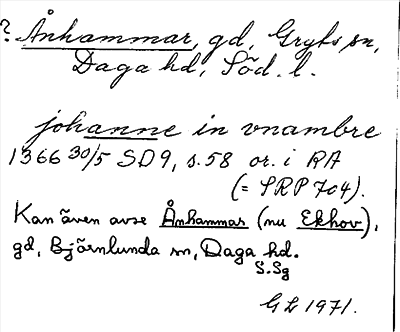 ? Ånhammar, gd, Gryts sn,
Daga hd, Söd. l.
johanne in vnambre
1366 30/5 SD9, s.58 or. i RA
(= SRP 704).
Kan även avse Ånhammar (nu Ekhov),
gd, Björnlunda sn, Daga hd.
S.Sg
GL 1971.